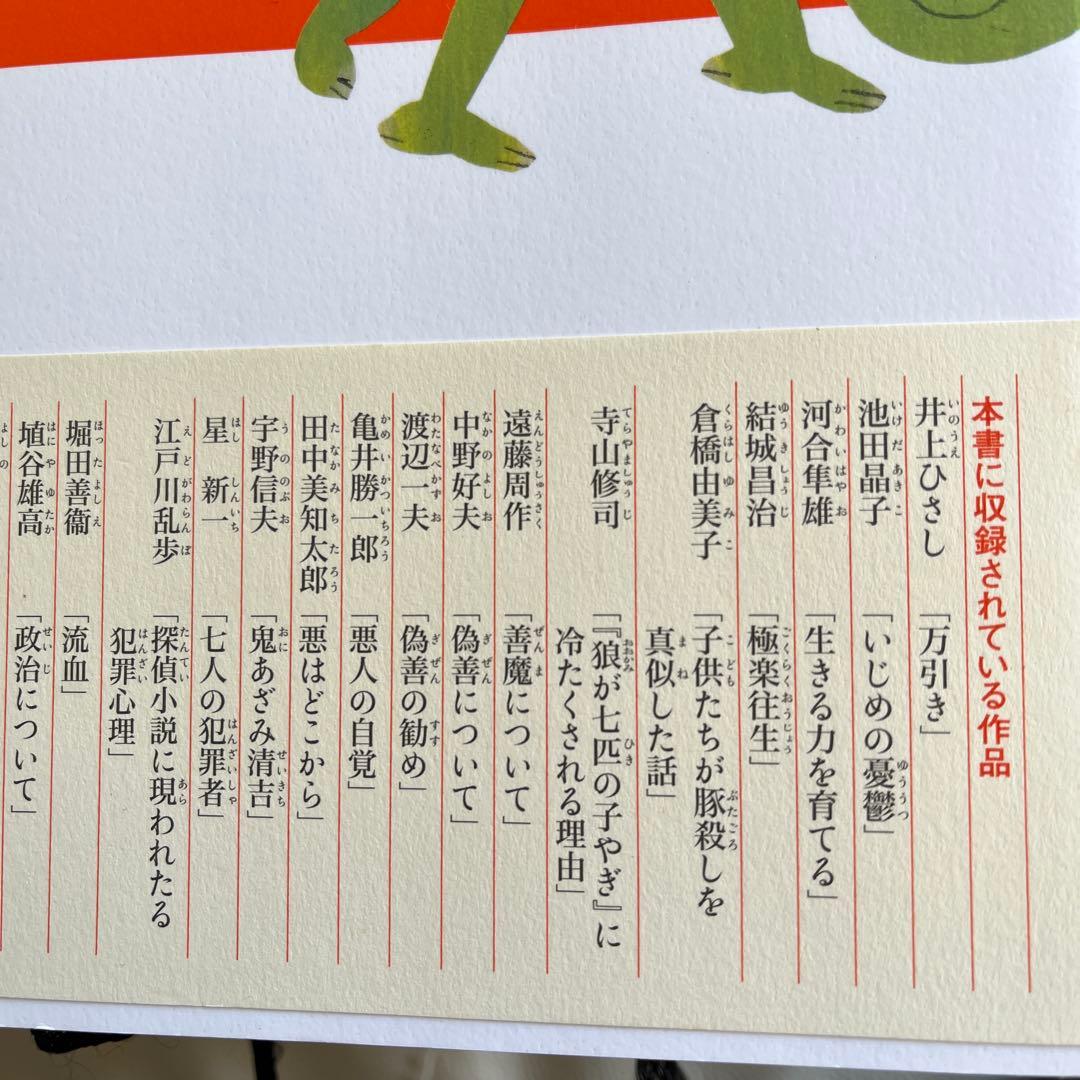 本書に収録されている作品
井上ひさし 「万引き」
池田晶子 「いじめの憂鬱」
河合隼雄 「生きる力を育てる」
結城昌治 「極楽往生」
倉橋由美子 「子供たちが豚殺しを
真似した話」
寺山修司 「『狼が七匹の子やぎ』に
冷たくされる理由」
遠藤周作 「善魔について」
中野好夫 「偽善について」
渡辺一夫 「偽善の勧め」
亀井勝一郎 「悪人の自覚」
田中美知太郎 「悪はどこから」
宇野信夫 「鬼あざみ清吉」
星 新一 「七人の犯罪者」
江戸川乱歩 「探偵小説に現われたる
犯罪心理」
堀田善衞 「流血」
埴谷雄高 「政治について」